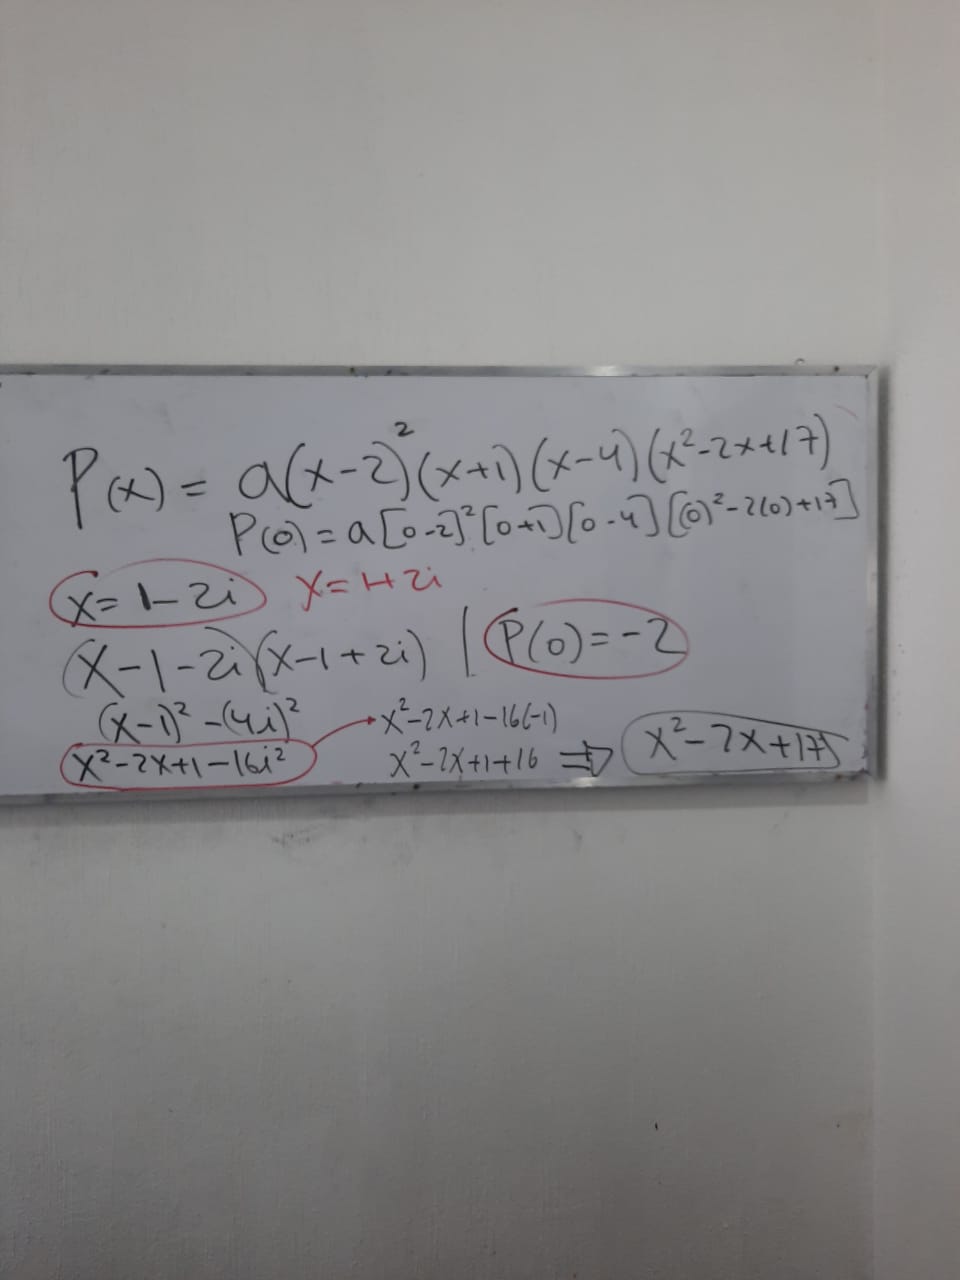 P(x) = a(x-2)²(x+1)(x-4)(x²-2x+17)
P(0) = a[0-2]²[0+1][0-4][(0)²-2(0)+17]
x = 1-2i x = 1+2i
(x-1-2i)(x-1+2i) | P(0) = -2
(x-1)² - (4i)²
x²-2x+1-16i² → x²-2x+1-16(-1)
x²-2x+1+16 ⇒ x²-2x+17